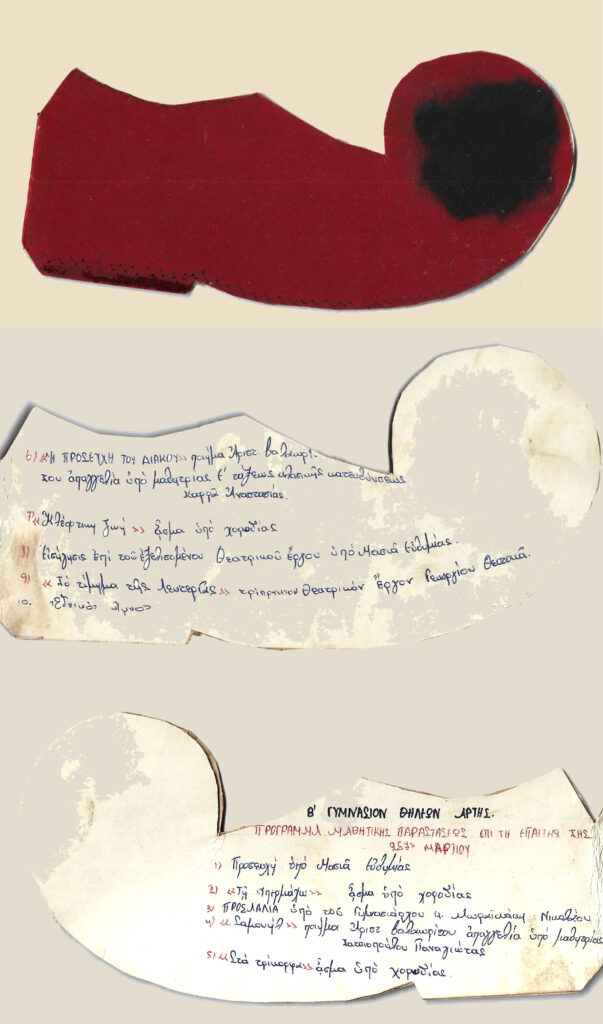 6) «Η ΠΡΟΣΕΥΧΗ ΤΟΥ ΔΙΑΚΟΥ» ποίημα Ἀριστ. Βαλαωρί-
του ἀπαγγελία ὑπό μαθητρίας Ε' τάξεως κλασικῆς κατευθύνσεως
Καρρᾶ Ἀναστασίας.
7) «Κλέφτικη ζωή» ᾆσμα ὑπό χορωδίας
8) Εἰσήγησις ἐπί τοῦ ἐξελισσομένου Θεατρικοῦ ἔργου ὑπό Μασιᾶ Εὐθυμίας.
9) «Τό τίμημα τῆς Λευτεριᾶς» τρίπρακτον Θεατρικόν ἔργον Γεωργίου Θεοτοκᾶ.
10. «Ἐθνικός Ὕμνος»
Β' ΓΥΜΝΑΣΙΟΝ ΘΗΛΕΩΝ ΑΡΤΗΣ.
ΠΡΟΓΡΑΜΜΑ ΜΑΘΗΤΙΚΗΣ ΠΑΡΑΣΤΑΣΕΩΣ ΕΠΙ ΤΗ ΕΠΑΙΤΙΩ ΤΗΣ
25ΗΣ ΜΑΡΤΙΟΥ.
1) Προσευχή ὑπό Μασιᾶ Εὐθυμίας
2) «Τῇ ὑπερμάχῳ» ᾆσμα ὑπό χορωδίας
3) ΠΡΟΣΛΑΛΙΑ ὑπό τοῦ Γυμνασιάρχου κ. Νικολάου
4) «Σαμουήλ» ποίημα Ἀριστ. Βαλαωρίτου ἀπαγγελία ὑπό μαθητρίας
Παναγιώτας
5) «Στά τρίκορφα» ᾆσμα ὑπό χορωδίας.